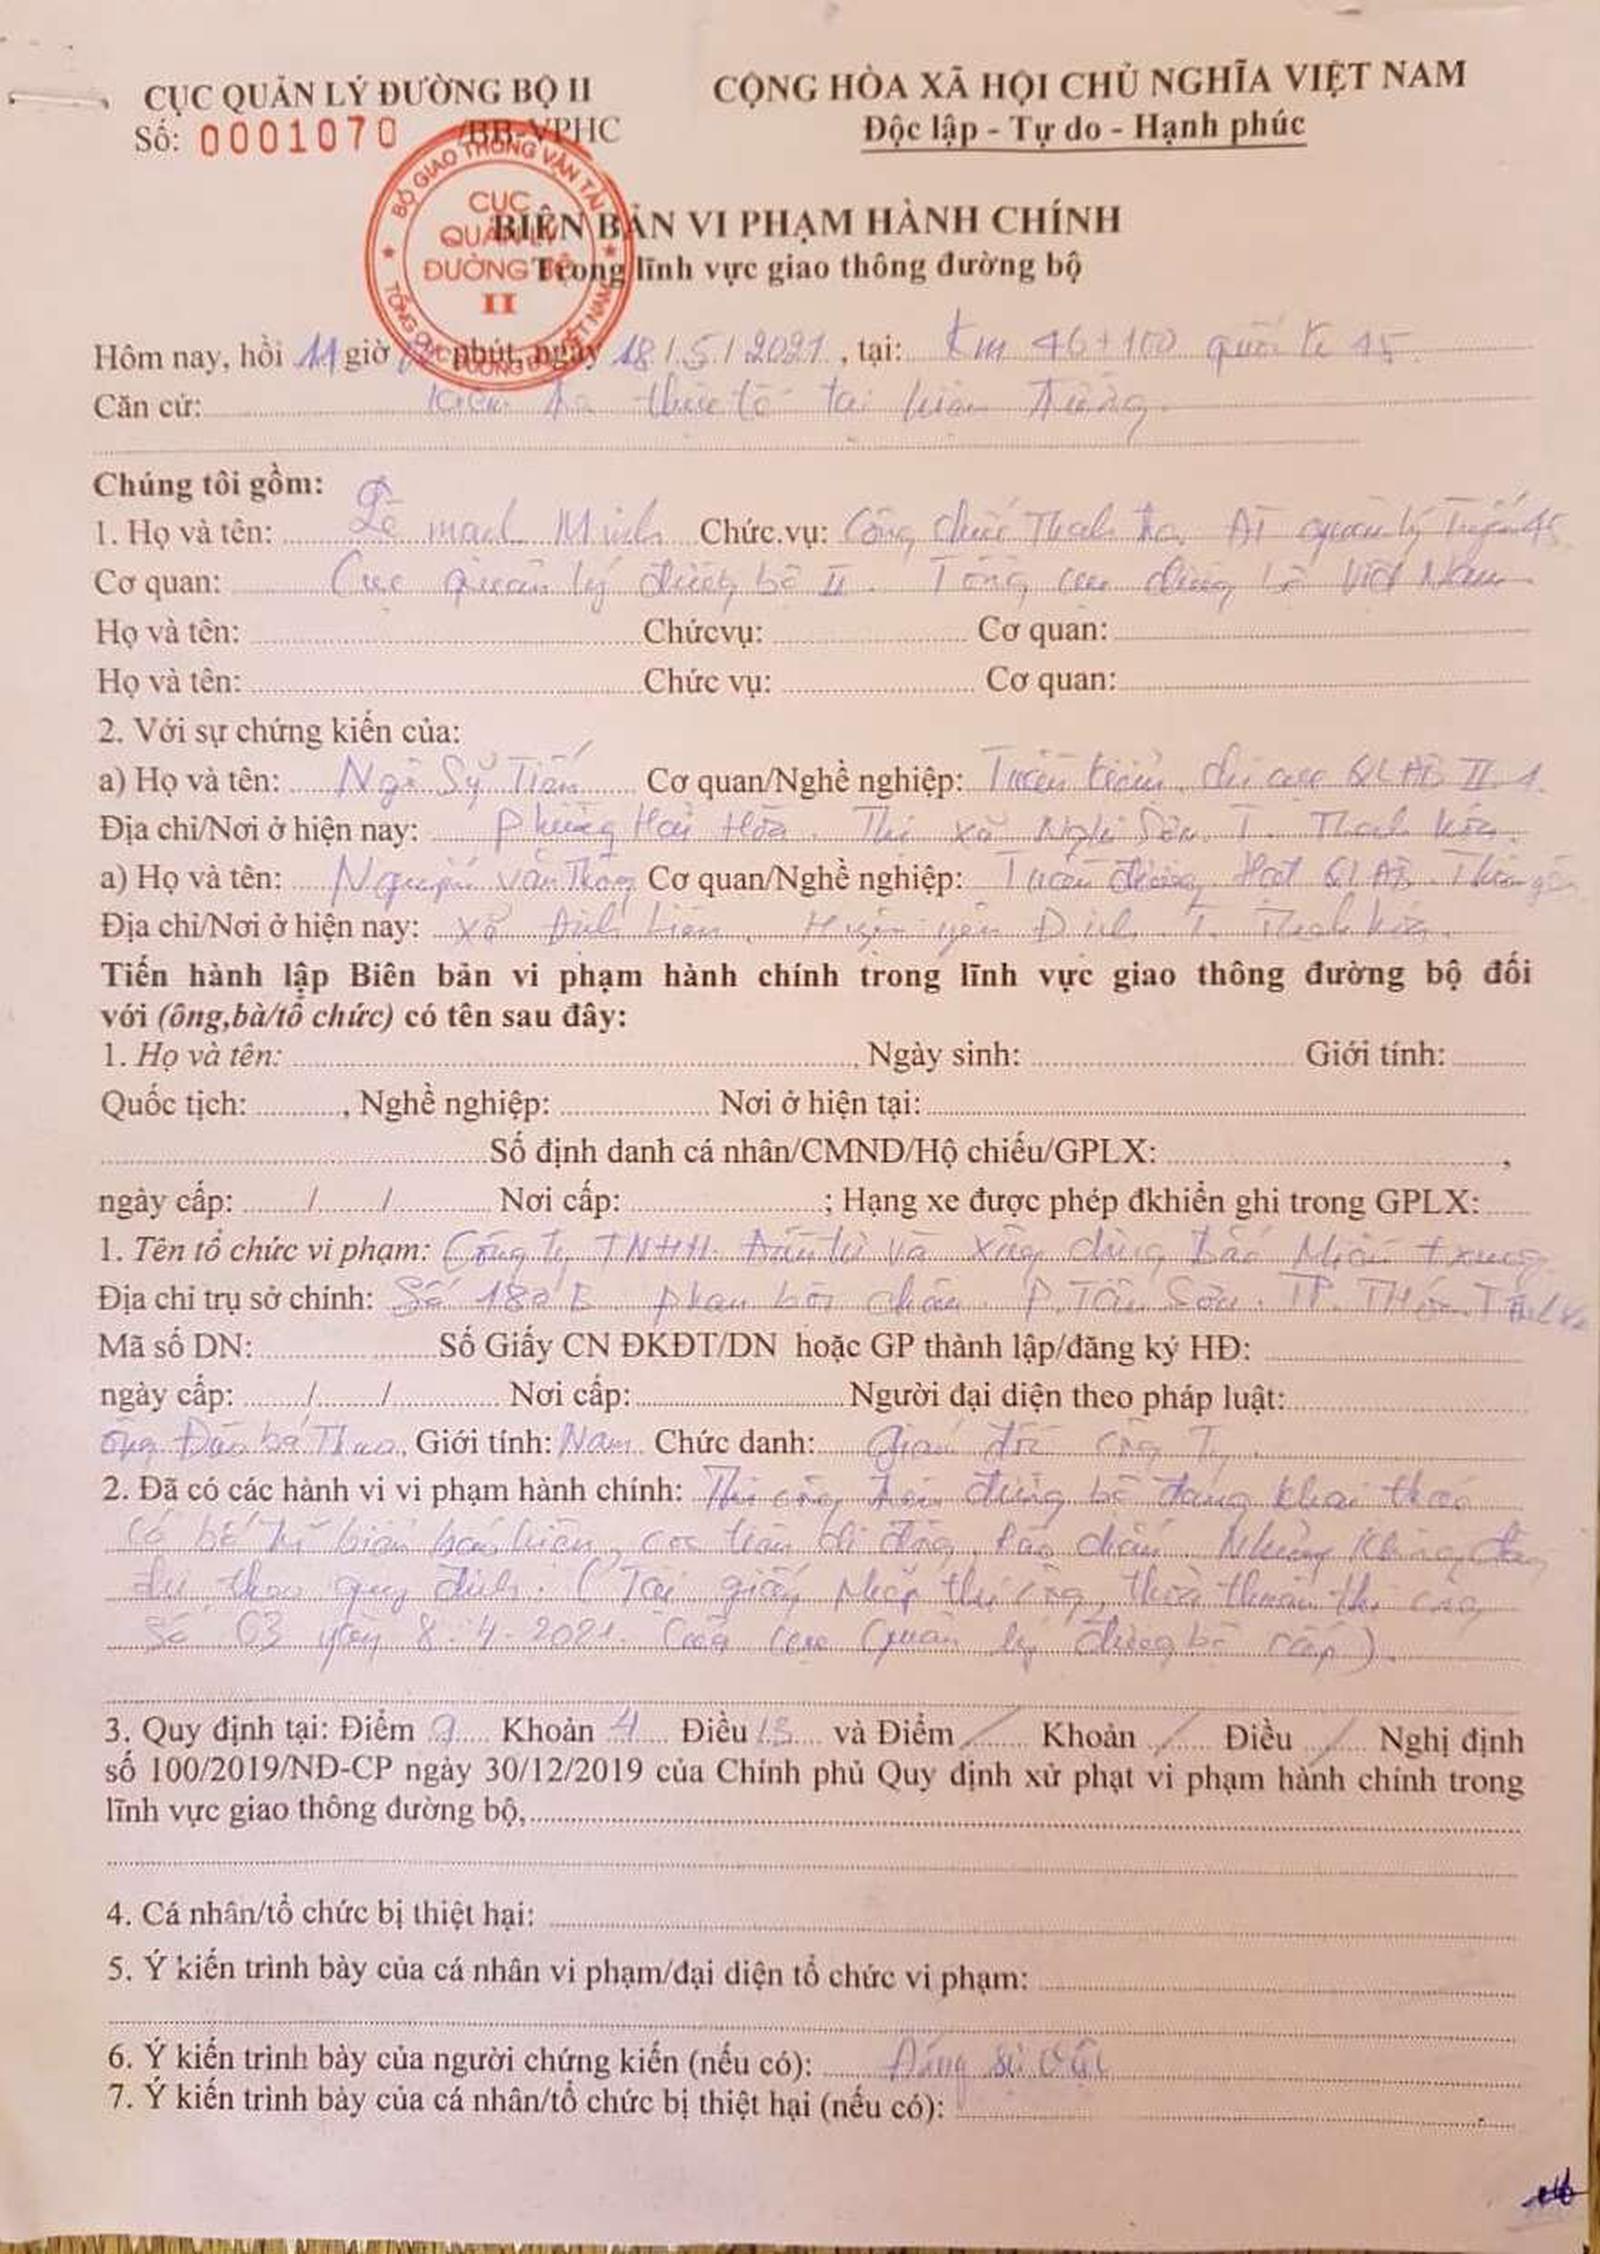 CỤC QUẢN LÝ ĐƯỜNG BỘ II
CỘNG HÒA XÃ HỘI CHỦ NGHĨA VIỆT NAM
Số: 0001070 /BB-VPHC
Độc lập - Tự do - Hạnh phúc
BỘ GIAO THÔNG VẬN TẢI
CỤC QUẢN LÝ ĐƯỜNG BỘ II
TỔNG CỤC ĐƯỜNG BỘ VIỆT NAM
BIÊN BẢN VI PHẠM HÀNH CHÍNH
Trong lĩnh vực giao thông đường bộ
Hôm nay, hồi 11 giờ phút, ngày 18/5/2021, tại: Km 46+100 quốc lộ 45
Căn cứ: Kiểm tra thực tế tại hiện trường
Chúng tôi gồm:
1. Họ và tên: Lê mạnh Minh Chức.vụ: Công chức Thanh tra, quản lý Tuyến 45
Cơ quan: Cục quản lý đường bộ II. Tổng cục đường bộ Việt Nam
Họ và tên: Chứcvụ: Cơ quan:
Họ và tên: Chức vụ: Cơ quan:
2. Với sự chứng kiến của:
a) Họ và tên: Ngô Sỹ Tiến Cơ quan/Nghề nghiệp: Tuần kiểm, chi cục QLĐB II.1
Địa chỉ/Nơi ở hiện nay: phường Hải Hòa. Thị xã Nghi Sơn. T. Thanh Hóa.
a) Họ và tên: Nguyễn Văn Thông Cơ quan/Nghề nghiệp: Tuần đường Hạt QLĐB.
Địa chỉ/Nơi ở hiện nay: xã Định Liên, Huyện yên Định. T. Thanh Hóa.
Tiến hành lập Biên bản vi phạm hành chính trong lĩnh vực giao thông đường bộ đối
với (ông,bà/tổ chức) có tên sau đây:
1. Họ và tên: , Ngày sinh: Giới tính:
Quốc tịch: , Nghề nghiệp: Nơi ở hiện tại:
Số định danh cá nhân/CMND/Hộ chiếu/GPLX: ,
ngày cấp: / / Nơi cấp: ; Hạng xe được phép đkhiển ghi trong GPLX:
1. Tên tổ chức vi phạm: Công ty TNHH Đầu tư và xây dựng Bắc Miền trung
Địa chỉ trụ sở chính: Số E phan bội châu. P. Tân Sơn. TP. T Hóa. T
Mã số DN: Số Giấy CN ĐKĐT/DN hoặc GP thành lập/đăng ký HĐ:
ngày cấp: / / Nơi cấp: Người đại diện theo pháp luật:
ông bá Thao, Giới tính: Nam Chức danh: Giám đốc công Ty.
2. Đã có các hành vi vi phạm hành chính: Thi công trên đường bộ đang khai thác
Có bố trí biển báo hiệu, cọc tiêu di động, rào chắn. Nhưng không đầy
đủ theo quy định. (Tại giấy phép thi công, thỏa thuận thi công
Số 03 ngày 8.4.2021. Của cục quản lý đường bộ cấp).
3. Quy định tại: Điểm Khoản 4 Điều 13 và Điểm / Khoản / Điều / Nghị định
số 100/2019/NĐ-CP ngày 30/12/2019 của Chính phủ Quy định xử phạt vi phạm hành chính trong
lĩnh vực giao thông đường bộ,
4. Cá nhân/tổ chức bị thiệt hại:
5. Ý kiến trình bày của cá nhân vi phạm/đại diện tổ chức vi phạm:
6. Ý kiến trình bày của người chứng kiến (nếu có): Đúng sự vật
7. Ý kiến trình bày của cá nhân/tổ chức bị thiệt hại (nếu có):